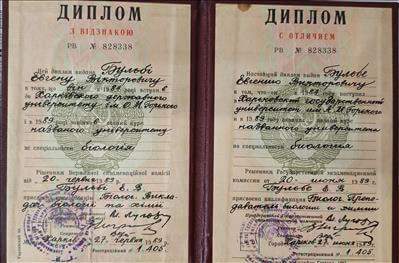 ДИПЛОМ
З ВІДЗНАКОЮ
РВ № 828338
Цей диплом видано Бульбі
Євгену Вікторовичу
в тому, що він 19 84 року вступив
Харківського державного
університету ім. О.М. Горького
і 19 89 курс
названого університету
за спеціальністю
біологія
Рішенням Державної екзаменаційної комісії
від 20 червня 19 89 р.
Бульбі Є. В.
Біолог. Викла-
дач біології та хімії
Харків 27 червня 19 89 р.
Реєстраційний № 1.405
ДИПЛОМ
С ОТЛИЧИЕМ
РВ № 828338
Настоящий диплом выдан Бульбе
Евгению Викторовичу
в том, что он в 19 84 году поступил
в Харьковский государственный
университет им. А.М. Горького
и в 19 89 курс
названного университета
по специальности
биология
Решением Государственной экзаменационной
комиссии от 20 июня 19 89 г.
Бульбе Е. В.
присвоена квалификация Биолог. Препо-
даватель биологии и химии
Город Харьков 27 июня 19 89 г.
Регистрационный № 1.405